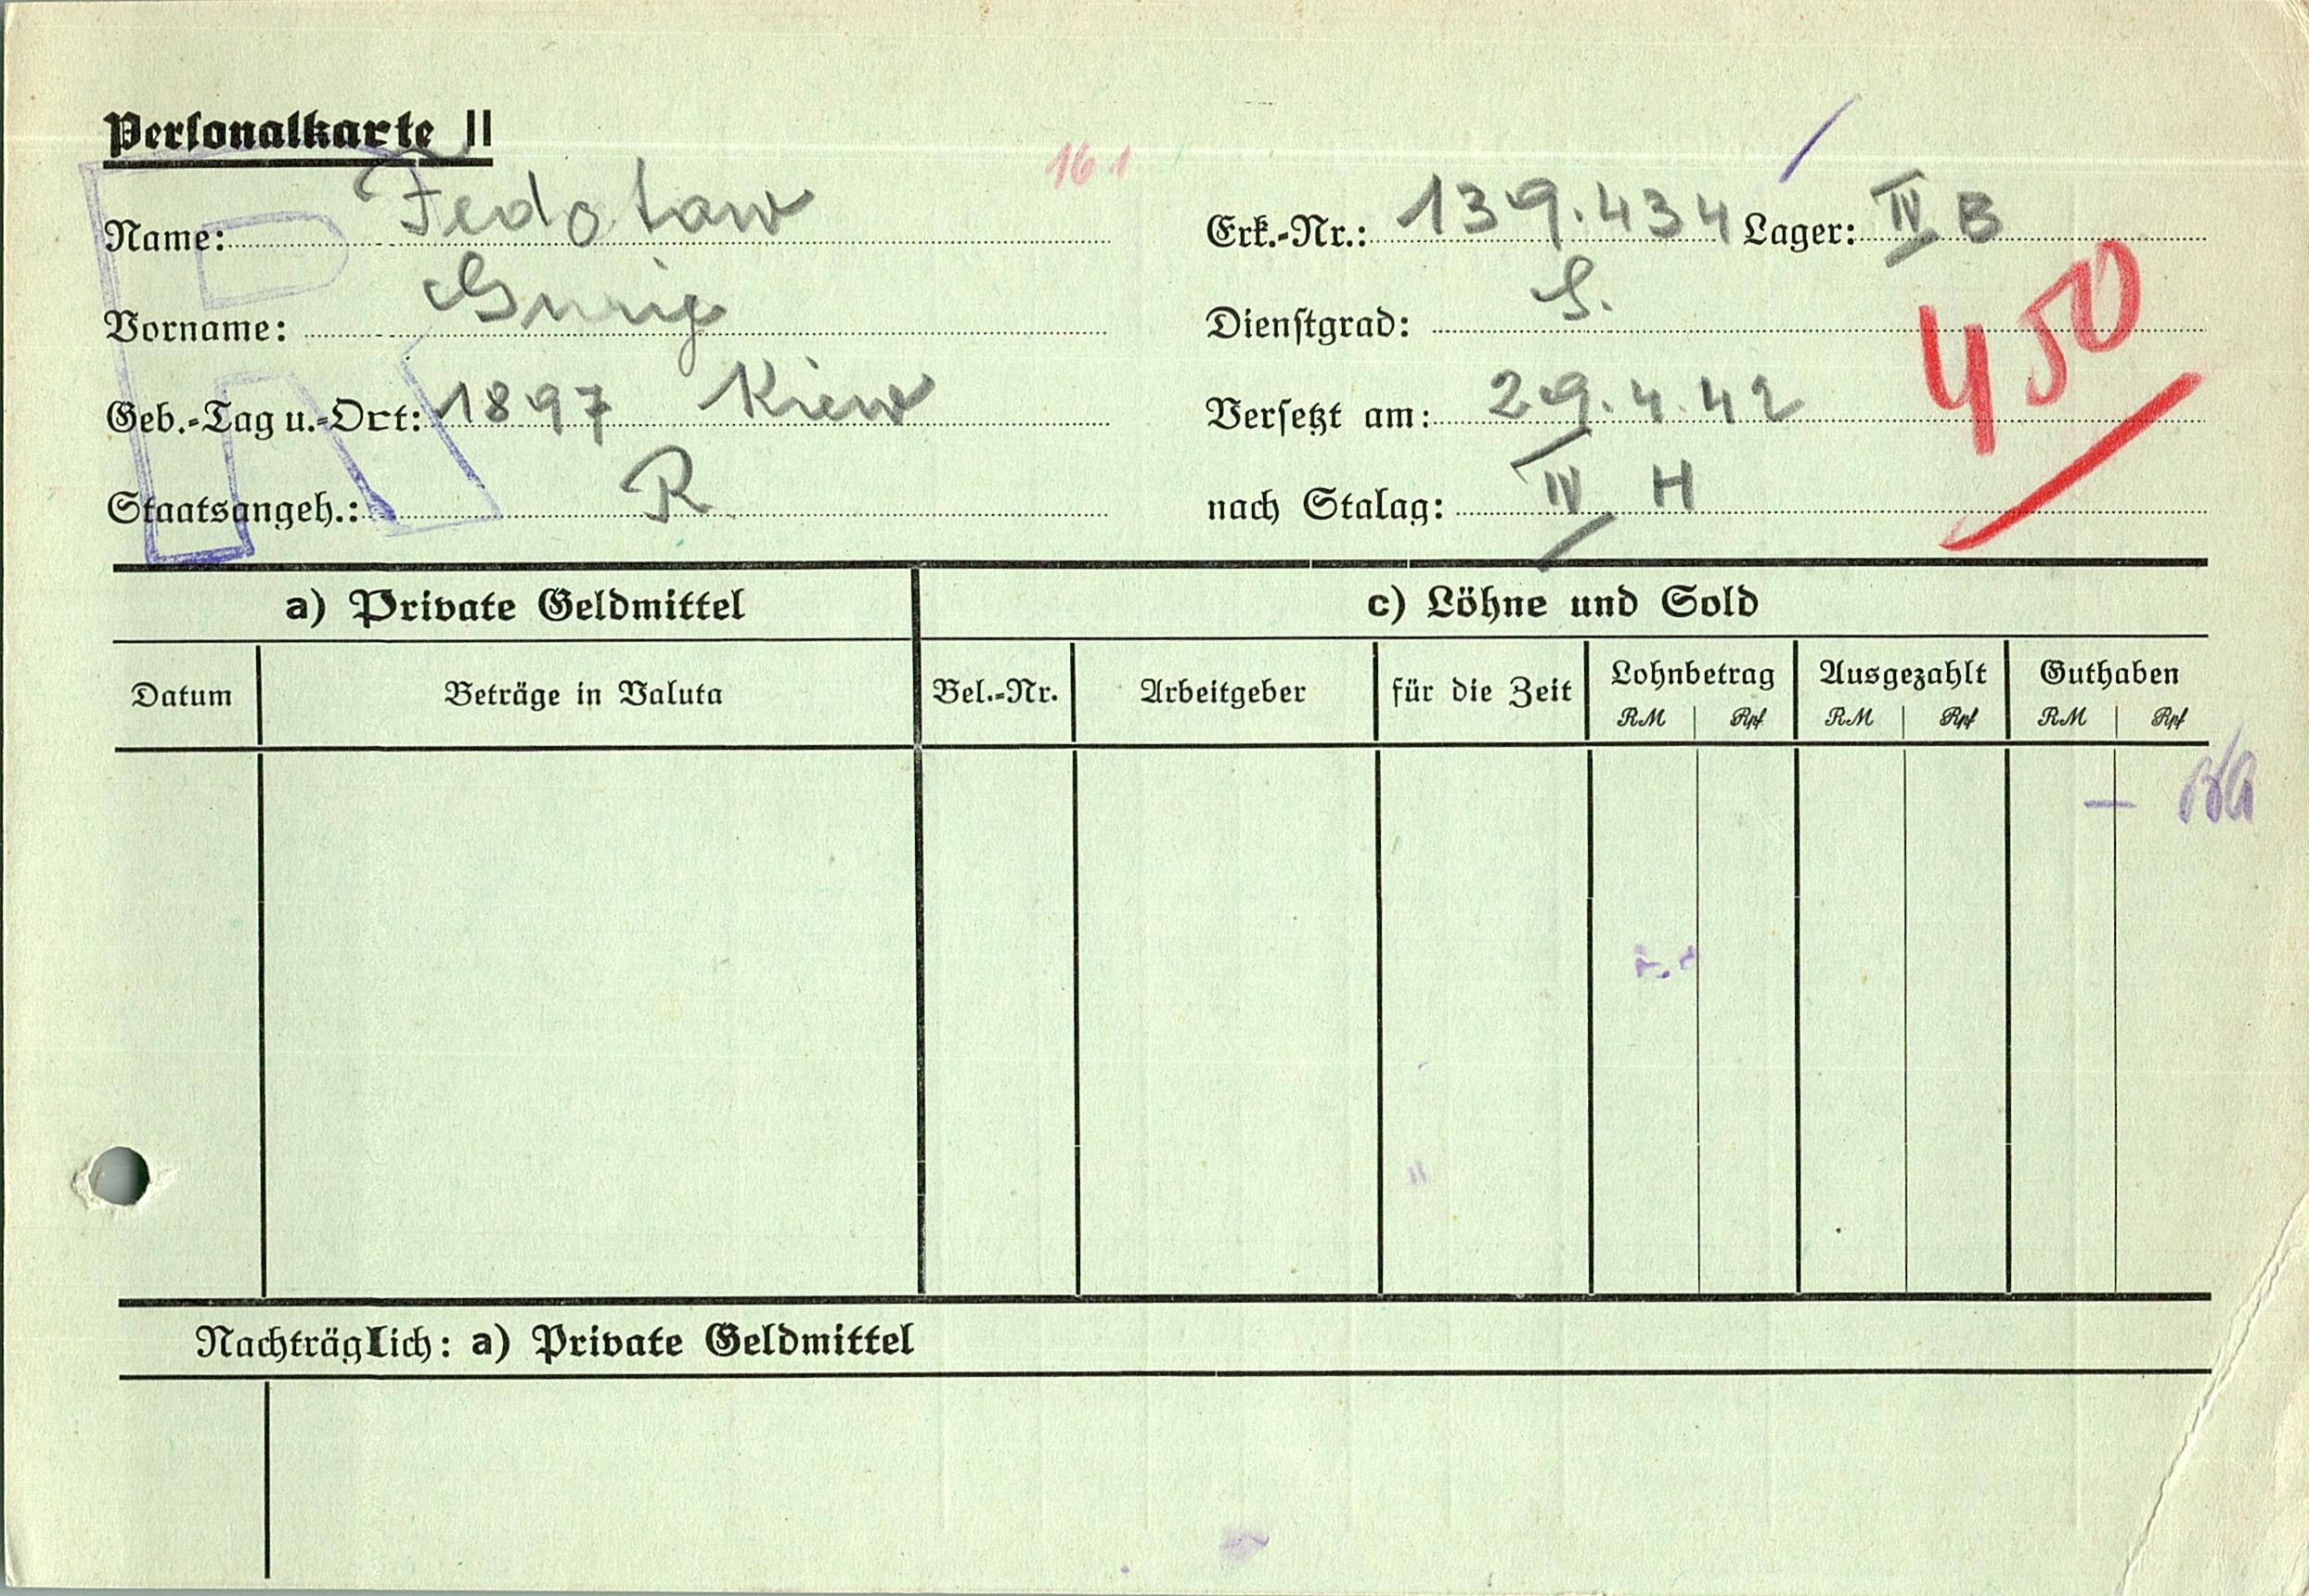 Personalkarte II
16 1
Name: Fedotow
Erk.-Nr.: 139.434 Lager: IV B
Vorname: Gurig
Dienstgrad: S.
450
Geb.-Tag u.-Ort: 1897 Kiew
Versetzt am: 29.4.42
Staatsangeh.: R
nach Stalag: IV H
R
a) Private Geldmittel
c) Löhne und Sold
Datum
Beträge in Valuta
Bel.-Nr.
Arbeitgeber
für die Zeit
Lohnbetrag
RM Rpf
Ausgezahlt
RM Rpf
Guthaben
RM Rpf
—
Nachträglich: a) Private Geldmittel